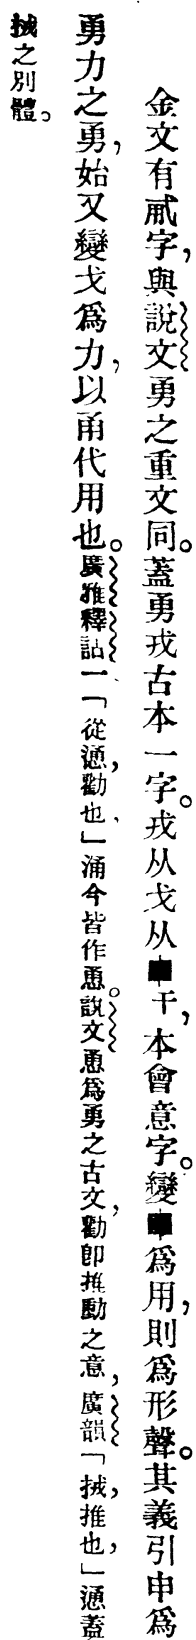 金文有字，與說文勇之重文同。蓋勇戎古本一字。戎从戈从干，本會意字。變爲用，則爲形聲。其義引申爲
勇力之勇，始又變戈爲力，以甬代用也。廣雅釋詁一「從慂，勸也」涌今皆作恿。說文恿爲勇之古文，勸卽推動之意，廣韻「，推也，」慂蓋
之別體。